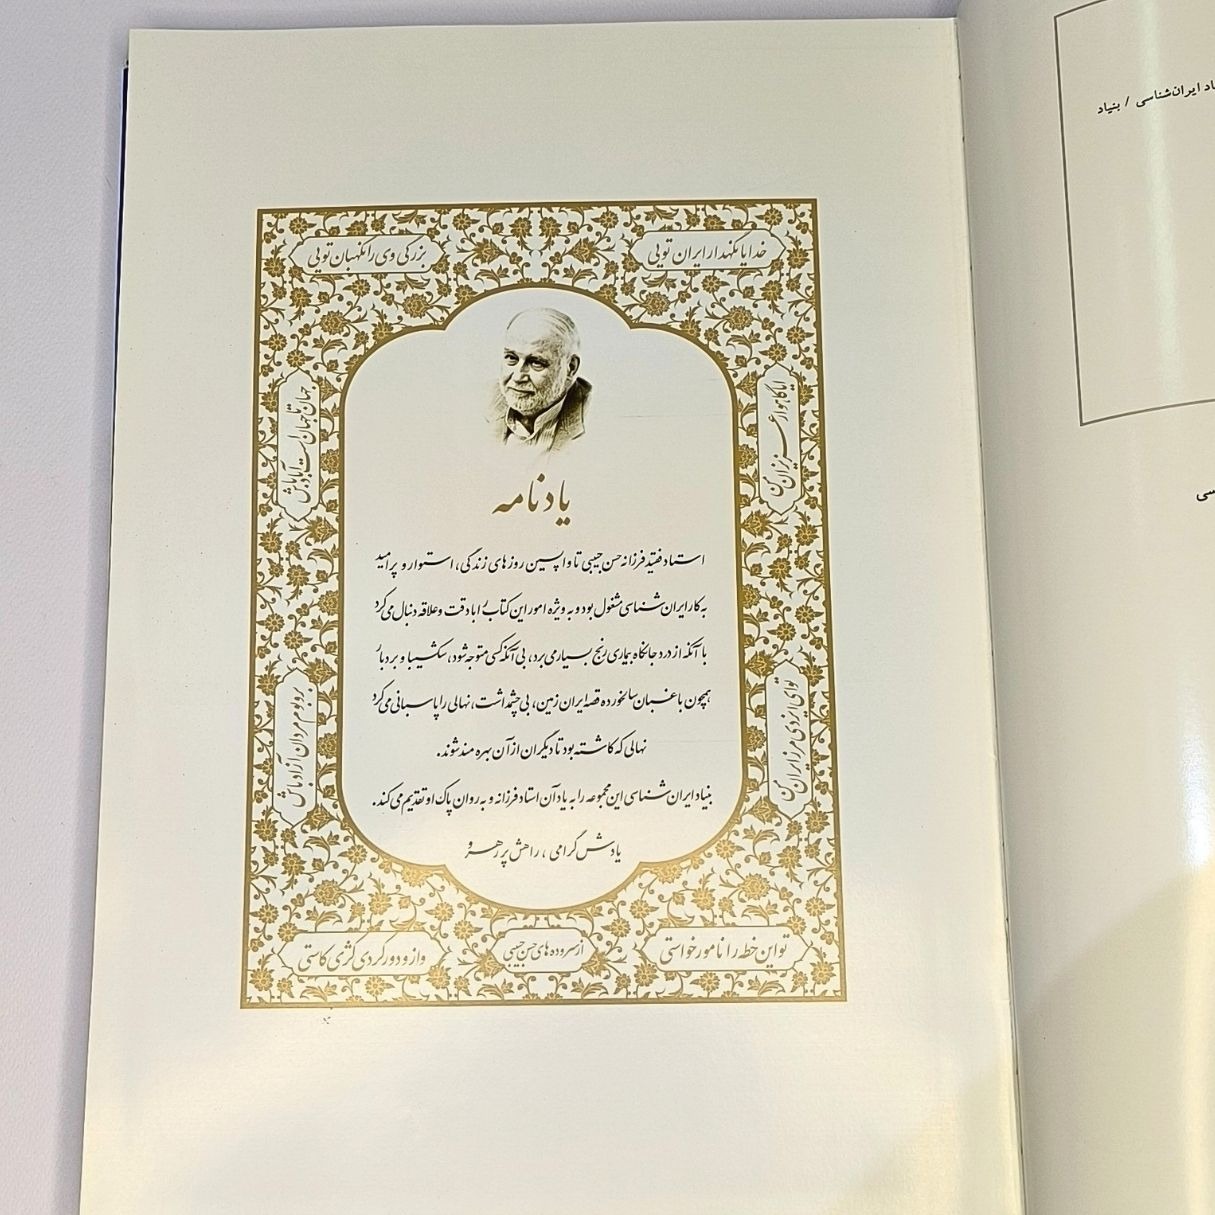 خدایا نگهدار ایران تویی
بزرگی وی را نگهبان تویی
ایا گاهوار عزیزان من
جهان تا جهان است آباد باش
یادنامه
استاد فقید فرزانه حسن حبیبی تا واپسین روزهای زندگی، استوار و پرامید
به کار ایران‌شناسی مشغول بود و به ویژه امور این کتاب را با دقت و علاقه دنبال می‌کرد
با آنکه از درد جانکاه بیماری رنج بسیار می‌برد، بی‌آنکه کسی متوجه شود، شکیبا و بردبار
همچون باغبان سالخورده قصه ایران زمین، بی چشمداشت، نهالی را پاسبانی می‌کرد
نهالی که کاشته بود تا دیگران از آن بهره مند شوند.
بنیاد ایران‌شناسی این مجموعه را به یاد آن استاد فرزانه و به روان پاک او تقدیم می‌کند.
یادش گرامی، راهش پر رهرو
تو ای ایزدی مرز ایران من
بر و بوم مردان آزاد باش
تو این خطه را نامور خواستی
از سروده‌های حسن حبیبی
واز و دور کردی کژی کاستی
اد ایران‌شناسی / بنیاد
سی